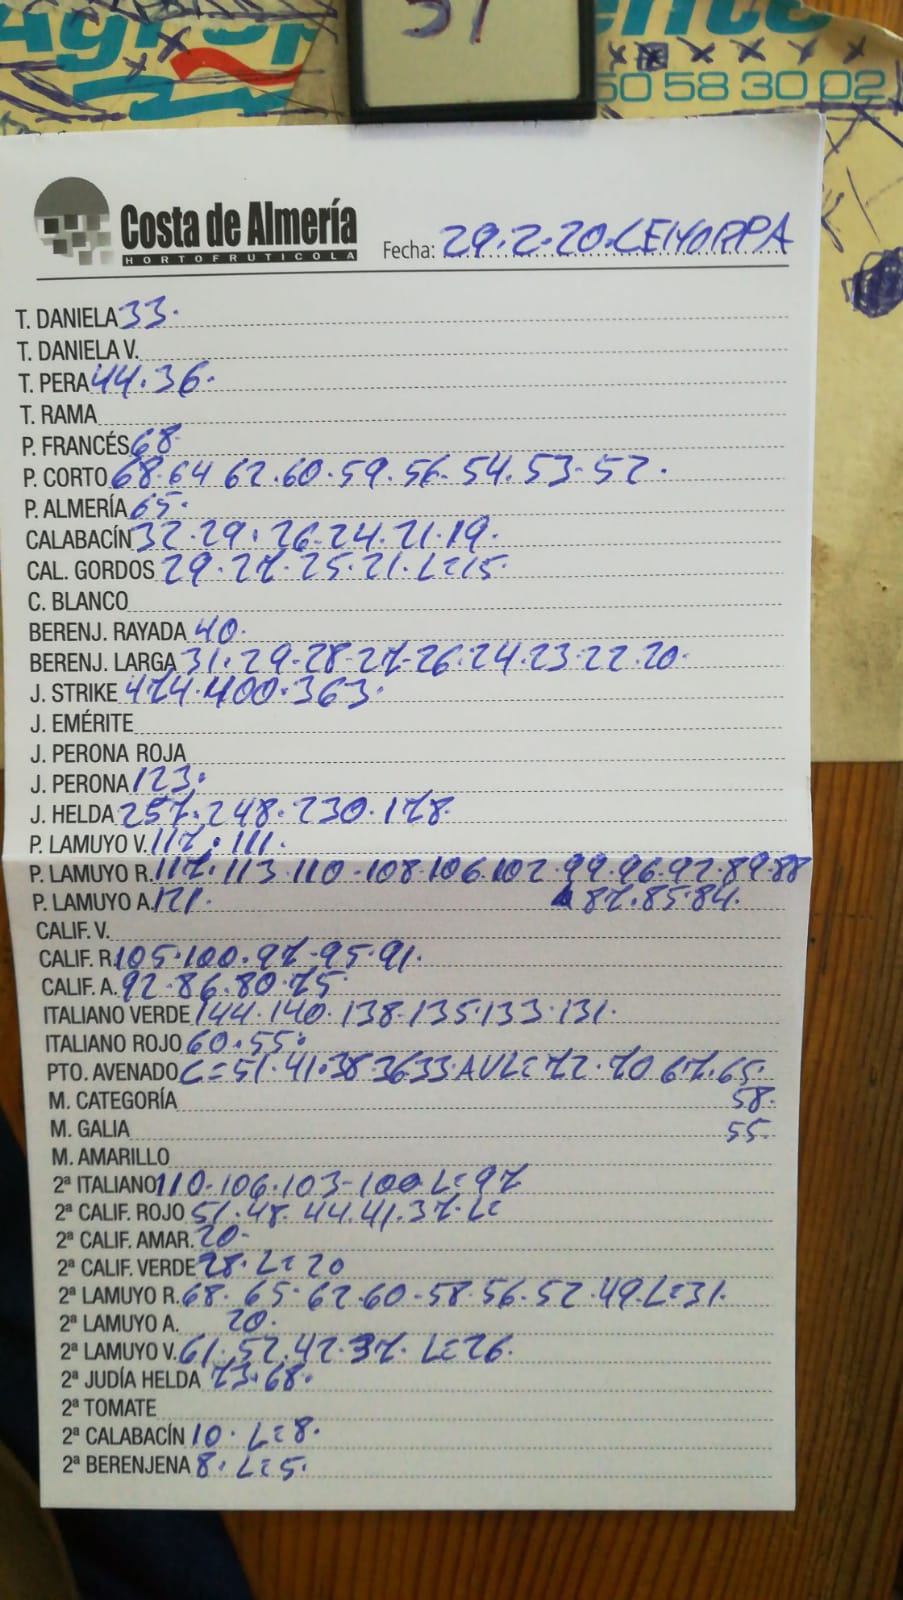 51
50 58 30 02
Costa de Almería
HORTOFRUTICOLA
Fecha: 29.2.20.
T. DANIELA 33.
T. DANIELA V.
T. PERA 44.36.
T. RAMA
P. FRANCÉS 68.
P. CORTO 68.64 62.60.59.56.54.53-52.
P. ALMERÍA 65.
CALABACÍN 32.29.26.24.21.19.
CAL. GORDOS 29.27.25.21.L=15.
C. BLANCO
BERENJ. RAYADA 40.
BERENJ. LARGA 31.29.28-27-26.24.23.22.20.
J. STRIKE 474.400.363.
J. EMÉRITE
J. PERONA ROJA
J. PERONA 123.
J. HELDA 257.248.230.178.
P. LAMUYO V. 117.111.
P. LAMUYO R. 117.113.110-108.106.102.99.96.92.89.88
87.85.84.
P. LAMUYO A. 121.
CALIF. V.
CALIF. R. 105.100.97-95-91.
CALIF. A. 92.86.80.75
ITALIANO VERDE 144.140.138.135.133.131.
ITALIANO ROJO 60.55.
PTO. AVENADO C=51.41.38.36 33. AVL=72.70 67.65.
58.
55.
M. CATEGORÍA
M. GALIA
M. AMARILLO
2ª ITALIANO 110.106.103-100 L=97
2ª CALIF. ROJO 51.48.44.41.37.L=
2ª CALIF. AMAR. 20-
2ª CALIF. VERDE 28.L=20
2ª LAMUYO R. 68.65.62.60-58.56.52.49.L=31.
2ª LAMUYO A. 20.
2ª LAMUYO V. 61.52.42.37. L=26.
2ª JUDÍA HELDA 73.68.
2ª TOMATE
2ª CALABACÍN 10. L=8.
2ª BERENJENA 8. L=5.